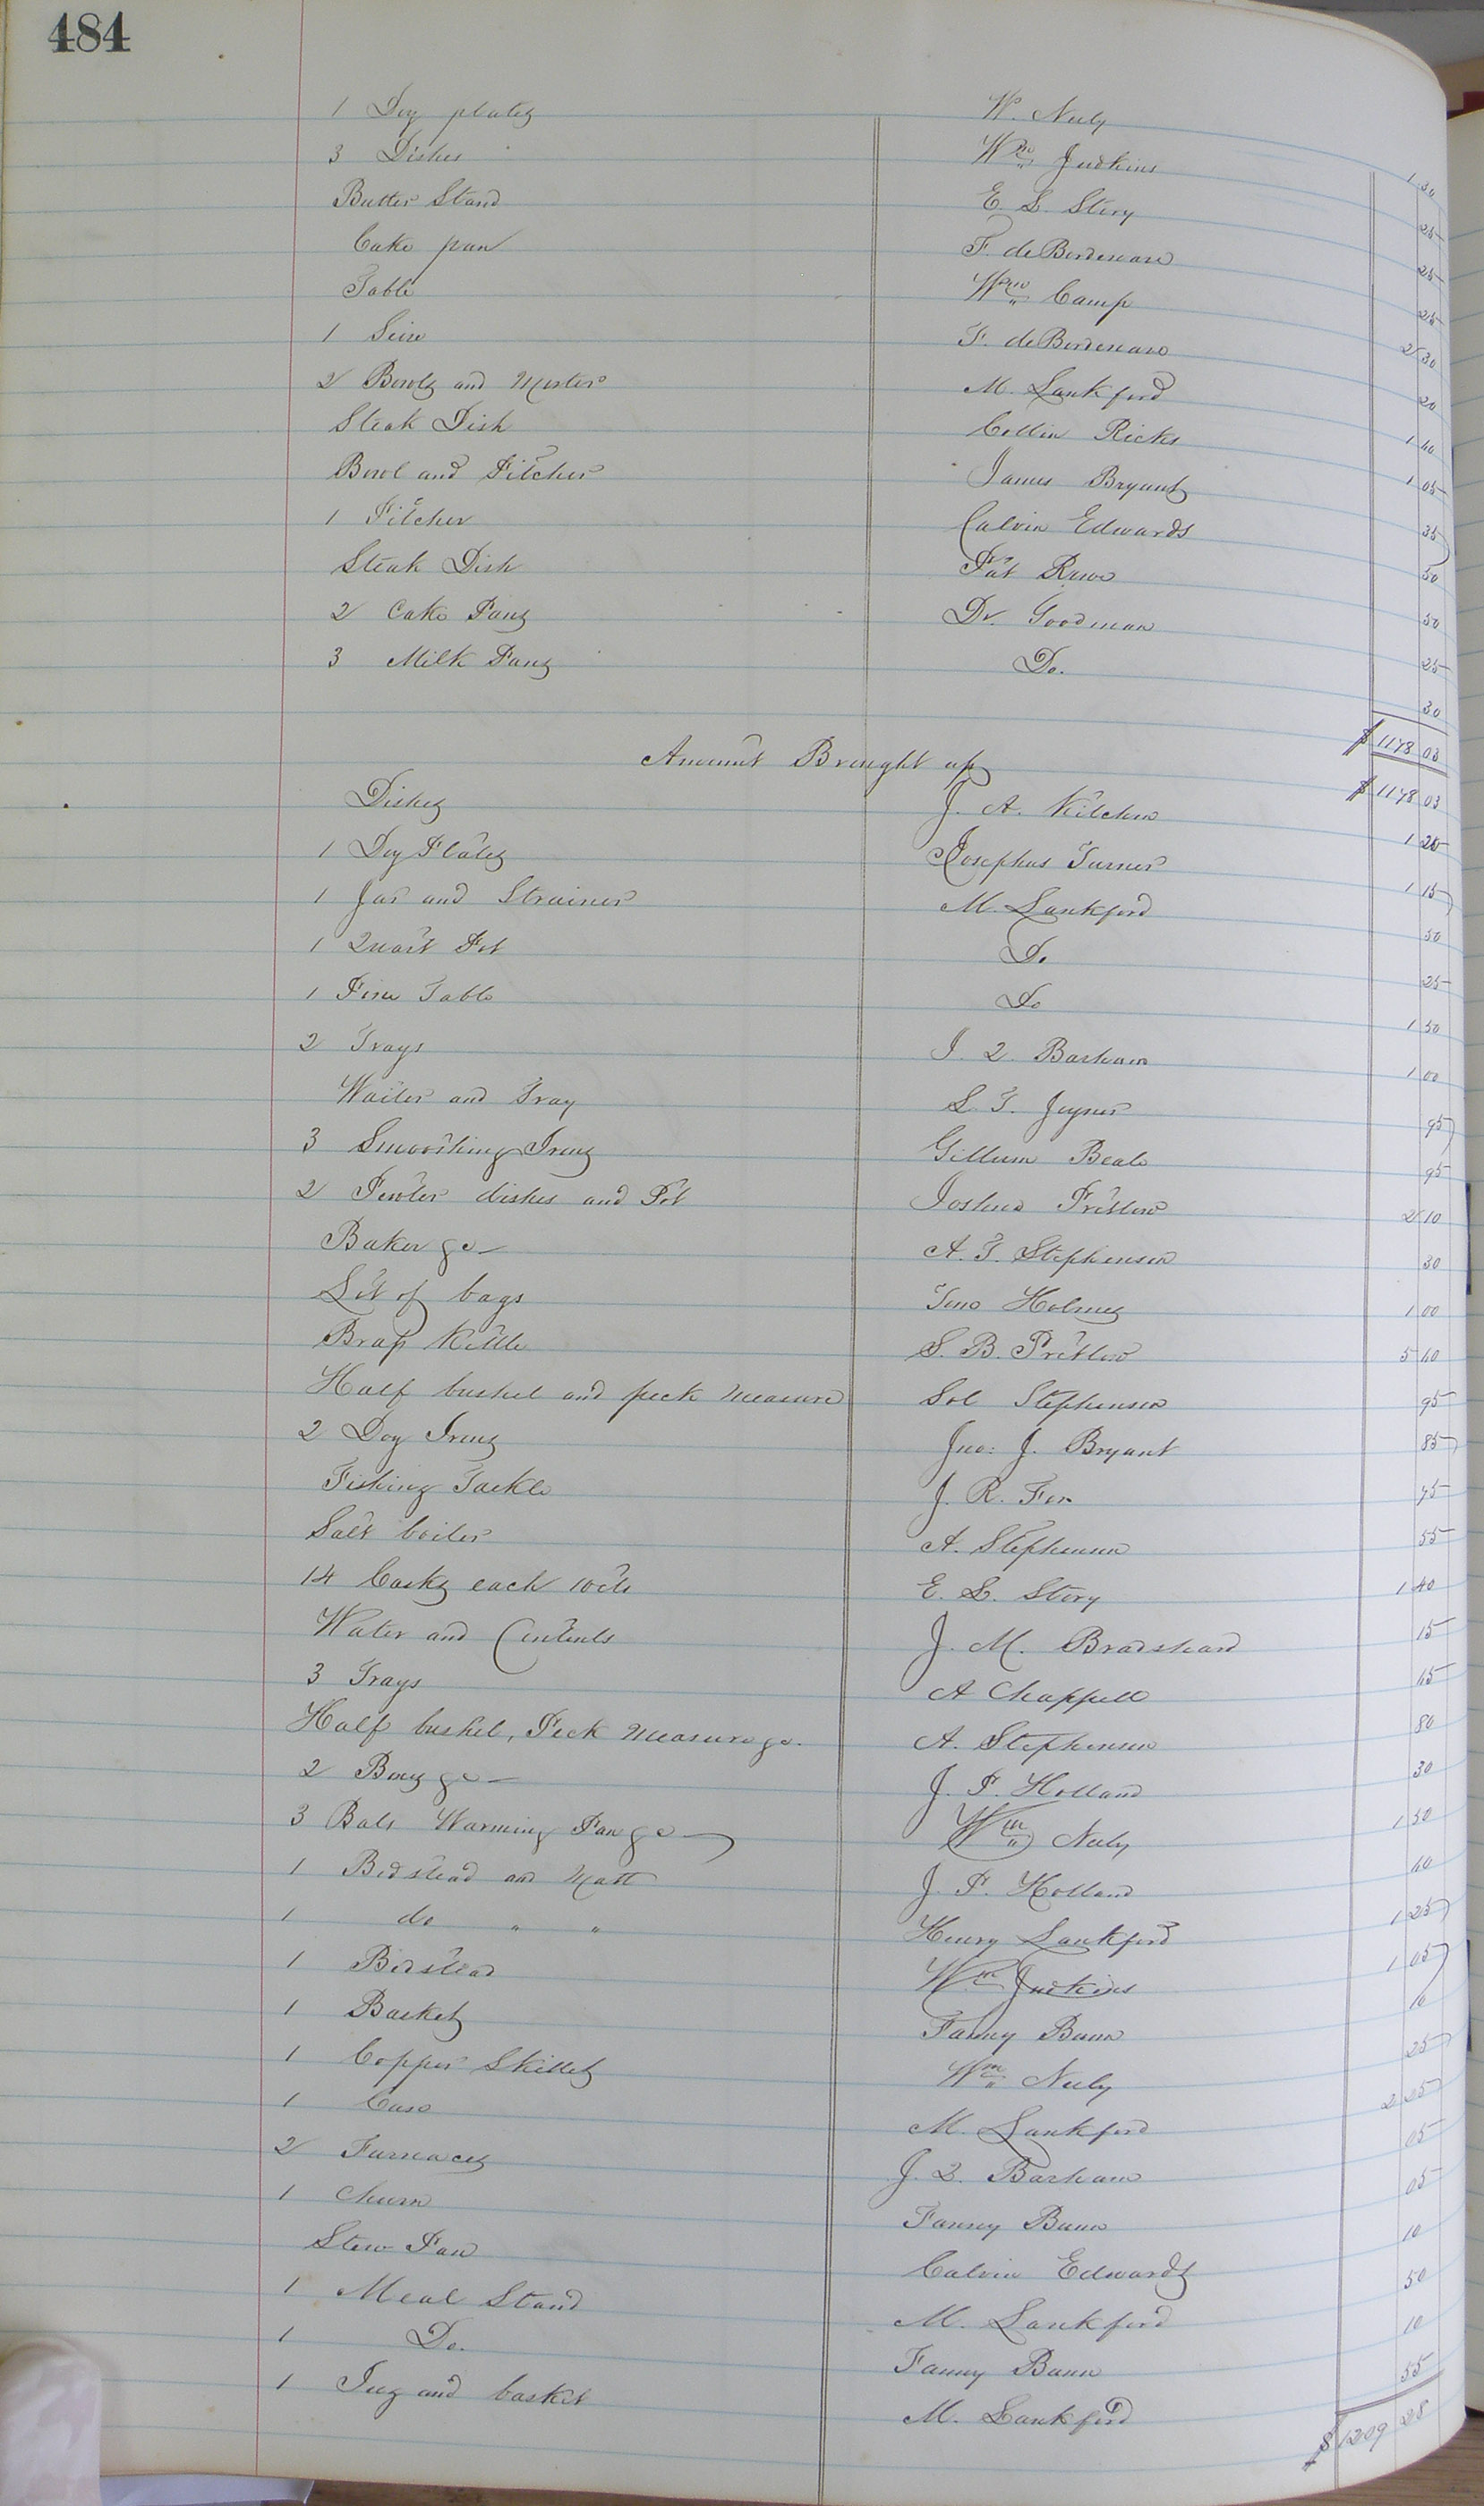 484
1 Doz plates W. Neely 1 30
3 Dishes Wm Judkins 25
Butter Stand E. S. Story 25
Cake pan F. deBordenave 25
Table Wm Camp 2 30
1 Seive F. deBordenave 20
2 Bowls and Morter M. Lankford 1 40
Steak Dish Collin Ricks 1 05
Bowl and Pitcher James Bryant 35
1 Pitcher Calvin Edwards 50
Steak Dish Pat Rowe 50
2 Cake Pans Dr. Goodman 25
3 Milk Pans Do. 30
$ 1178 03
Amount Brought up $ 1178 03
Dishes J. A. Kitchen 1 20
1 Doz Plates Josephus Turner 1 15
1 Jar and Strainer M. Lankford 50
1 Quart Pot Do 25
1 Pine Table Do 1 50
2 Trays J. Q. Barham 1 00
Waiter and Tray S. T. Joyner 95
3 Smoothing Irons Gillum Beale 95
2 Pewter dishes and Pot Joshua Pretlow 2 10
Baker &c A. T. Stephenson 30
Lot of bags Holmes 1 00
Brass Kettle S. B. Pretlow 5 60
Half bushel and peck Measure Sol Stephenson 95
2 Dog Irons Jno: J. Bryant 85
Fishing Tackle J. R. Fox 75
Salt boiler A. Stephenson 55
14 Casks each 10cts E. S. Story 1 40
Water and Contents J. M. Bradshaw 15
3 Trays A Chappell 45
Half bushel, Peck Measure &c. A. Stephenson 80
2 Boxes &c J. P. Holland 30
3 Warming Pan &c Wm Neely 1 50
1 Bedstead and Matt J. P. Holland 60
1 do " " Henry Lankford 1 25
1 Bedstead Wm Judkins 1 05
1 Basket Fanny Bunn 10
1 Copper Skillet Wm Neely 25
1 Case M. Lankford 2 25
2 Furnaces J. Q. Barham 05
1 Churn Fanny Bunn 05
Stew Pan Calvin Edwards 10
1 Meal Stand M. Lankford 50
1 Do. Fanny Bunn 10
1 Jug and basket M. Lankford 55
$ 1209 28